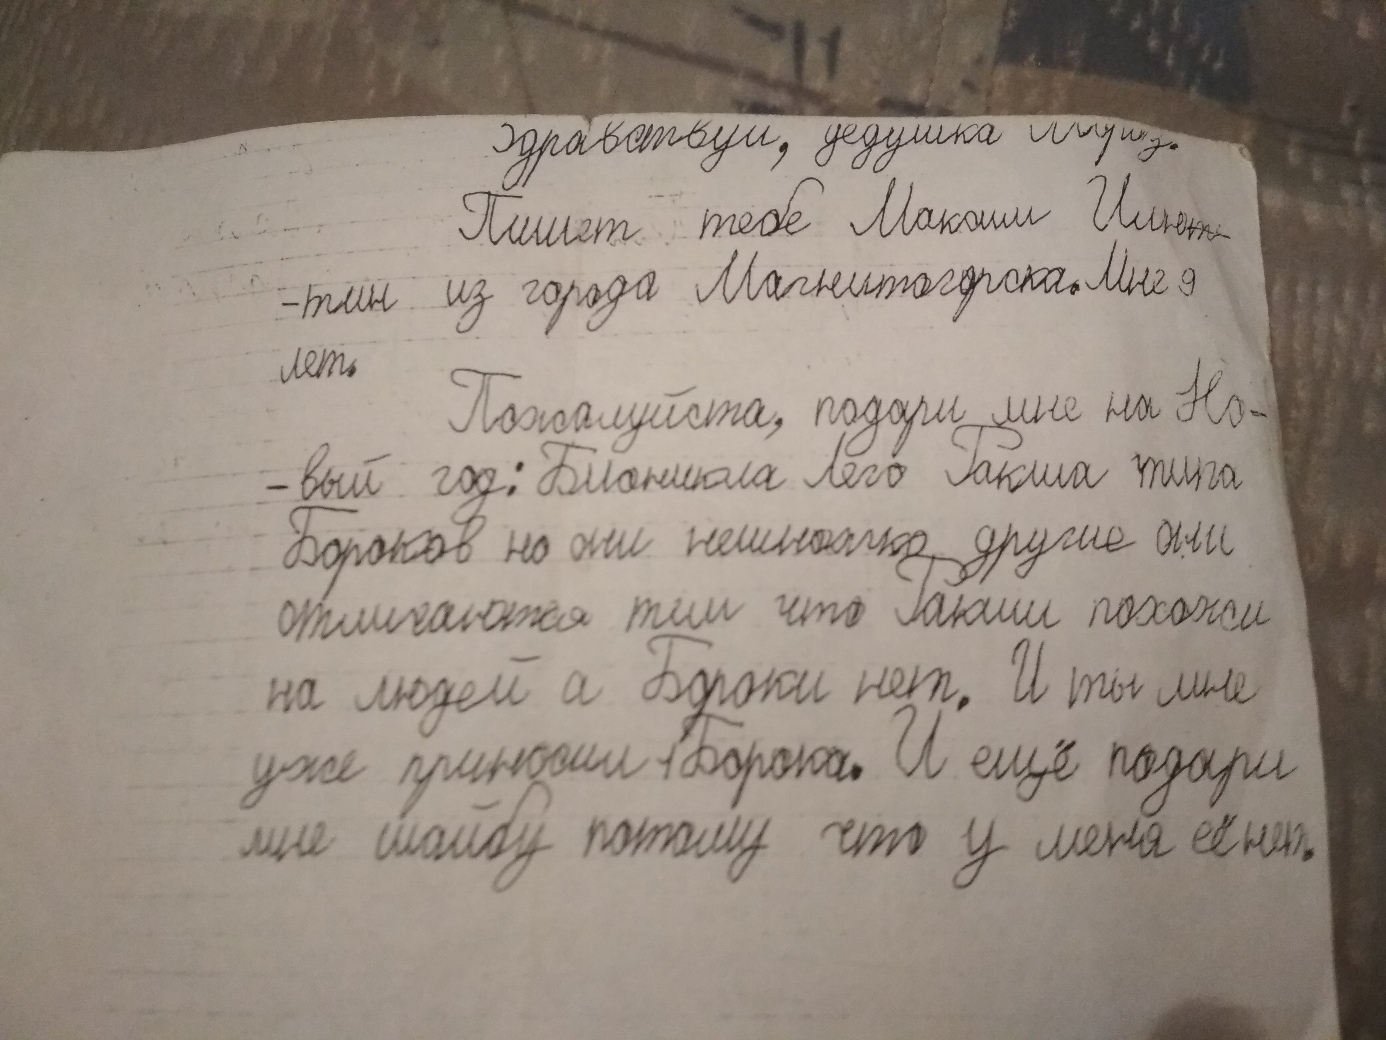 Здравствуй, дедушка Мороз.
Пишет тебе Максим
-тин из города Магнитогорска. Мне 9
лет.
Пожалуйста, подари мне на Но-
-вый год: Бионикла Лего Ракша типа
Бороков но они немножко другие они
отличаются тем что Ракши похожи
на людей а Бороки нет. И ты мне
уже приносил 1 Борока. И ещё подари
мне шайбу потому что у меня её нет.